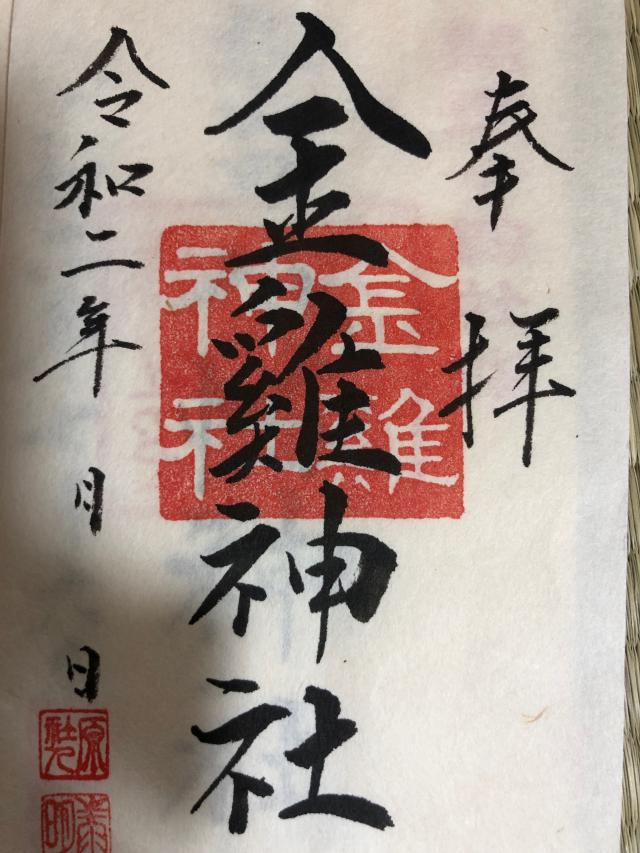 奉拝
金雞神社
金雞
神社
令和二年 月 日